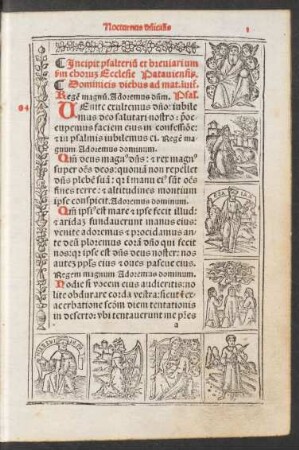 Nocturnus dñicalis
1
¶ Incipit psalteriū et breviarium
fm chorum Ecclesie Patauiensis.
¶ Dominicis diebus ad mat. inui.
Regē magnū. Adoremus dñm. Psal.
94
Uenite exultemus dño: iubile
mus deo salutari nostro: preoc
cupemus faciem eius in confessiōe:
et in psalmis iubilemus ei. Regē ma
gnum Adoremus dominum.
Qm̄ deus magn⁹ dñs: et rex magn⁹
super oēs deos: quoniā non repellet
dñs plebē suā: qr̄ ī manu ei⁹ sūt oēs
fines terre: et altitudines montium
ipse conspicit. Adoremus dominum.
Qm̄ ipsi⁹ est mare et ipse fecit illud:
et aridā fundauerunt manus eius:
venite adoremus et procidamus an̄
te deū ploremus corā dño qui fecit
nos: qr ipse est dñs deus noster: nos
autē ppl's eius et oues pascue eius.
Regem magnum Adoremus dominum.
Hodie si vocem eius audieritis: no
lite obdurare corda vestra: sicut ī ex
acerbatione scdm diem tentationis
in deserto: vbi tentauerunt me p̄res
a